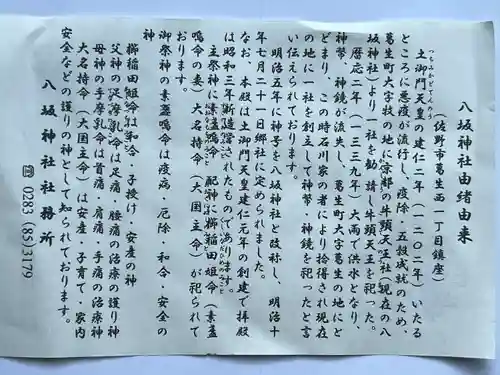 八坂神社由緒由来
(佐野市葛生西一丁目鎮座)
つちみかどてんのう
土御門天皇の建仁二年(一二〇二年)いたる
ところに悪疫が流行し、疫除・五穀成就のため、
葛生町大字牧の地に京都の牛頭天王社(現在の八
坂神社)より一社を勧請し牛頭天王を祀った。
暦応二年(一三三九年)大雨で洪水となり、
神幣、神鏡が流失し、葛生町大字葛生の地にと
どまり、この時石川家の者により拾得され現在
の地に一社を創立して神幣・神鏡を祀ったと言
い伝えられております。
明治五年に神号を八坂神社と改称し、明治十
年七月二十一日郷社に定められました。
なお、本殿は土御門天皇建仁元年の創建で拝殿
は昭和三年新造営されたものであります。
主祭神に素盞鳴命 配神に櫛稲田姫命(素盞
鳴命の妻)大名持命(大国主命)が祀られて
おります。
御祭神の素盞鳴命は疫病・厄除・和合・安全の
神
櫛稲田姫命は和合・子授け・安産の神
父神の足摩乳命は足痛・腰痛の治療の護り神
母神の手摩乳命は首痛・肩痛・手痛の治療神
大名持命(大国主命)は安産・子育て・家内
安全などの護りの神として知られております。
八坂神社社務所
☎ 0283(85)3179